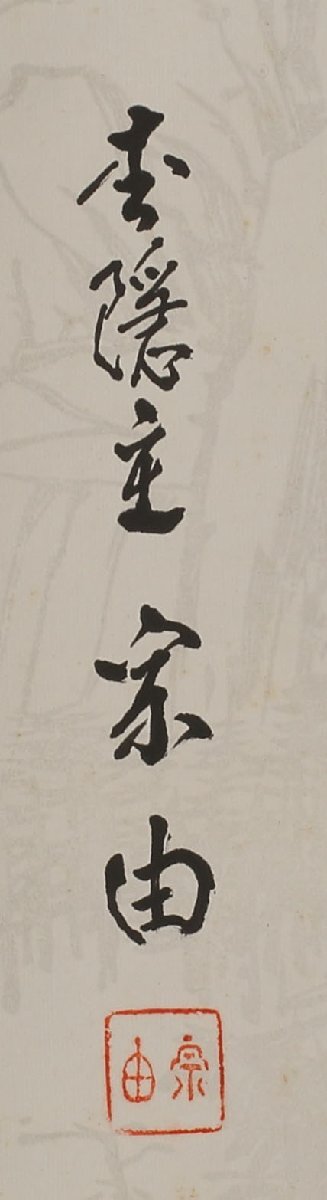 隠主 宗由
宗由